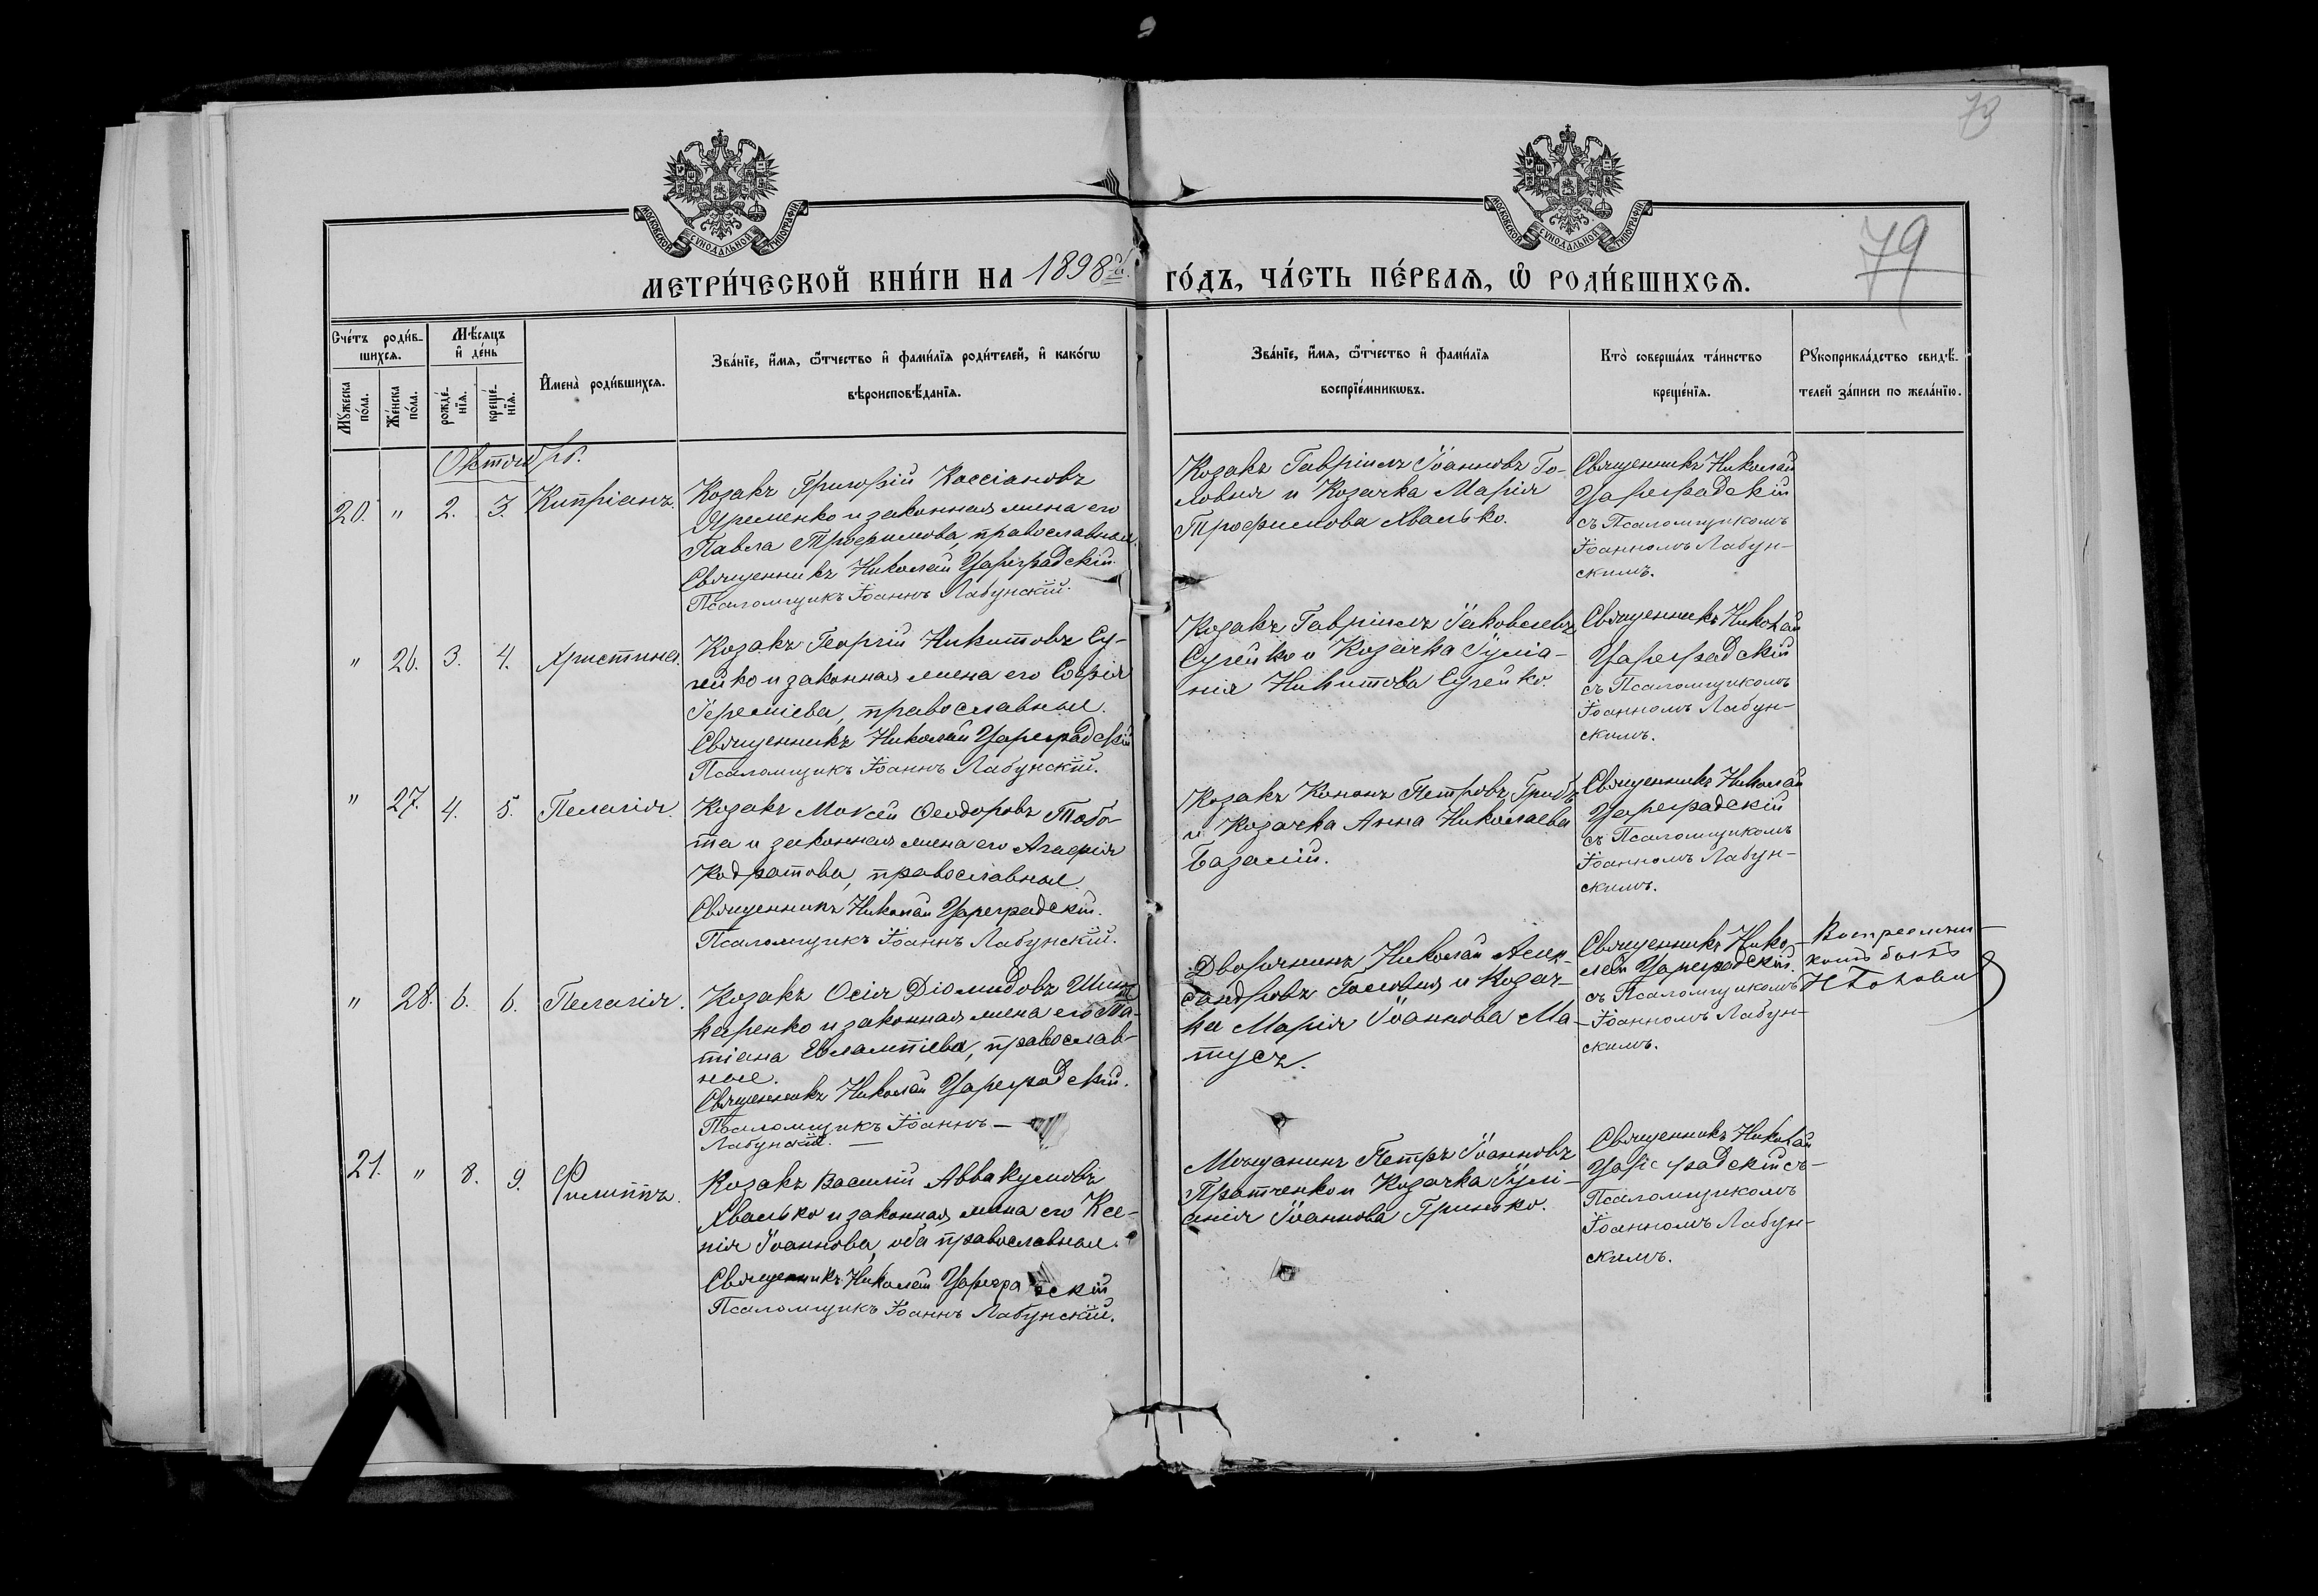 73
79
МОСКОВСКОЙ СУНОДАЛЬНОЙ ТИПОГРАФІИ
МОСКОВСКОЙ СУНОДАЛЬНОЙ ТИПОГРАФІИ
МЕТРИ́ЧЕСКОЙ КНИ́ГИ НА 1898й
ГО́ДЪ, ЧА́СТЬ ПЕ́РВАѦ, Ѽ РОДИ́ВШИХСѦ.
Сче́тъ роди́в-
шихсѧ.
Мꙋ́жеска по́ла.
Же́нска по́ла.
Мѣ́сѧцъ
и҆ де́нь
рожде́-
нїѧ.
креще́-
нїѧ.
И҆мена̀ роди́вшихсѧ.
Зва́нїе, и҆́мѧ, ѻ҆́тчество и҆ фами́лїѧ роди́телей, и҆ како́гѡ
вѣроисповѣ́данїѧ.
Зва́нїе, и҆́мѧ, ѻ҆́тчество и҆ фами́лїѧ
воспрїе́мникѡвъ.
Кто̀ соверша́лъ та́инство
креще́нїѧ.
Рꙋкоприкла́дство свидѣ́-
телей за́писи по жела́нїю.
Октябрь.
20. " 2. 3. Кипріанъ.
Козакъ Григорій Кассіановъ
Яременко и законная жена его
Павла Трофимова, православныи.
Священникъ Николай Цареградскій.
Псаломщикъ Іоаннъ Лабунскій.
Козакъ Гавріилъ Іоанновъ Го-
ловня и Козачка Марія
Трофимова Хвалько.
Священникъ Николай
Цареградскій
съ Псаломщикомъ
Іоанномъ Лабун-
скимъ.
" 26. 3. 4. Христина.
Козакъ Георгій Никитовъ Су-
гейко и законная жена его Софія
Іереміева, православные.
Священникъ Николай Цареградскій
Псаломщикъ Іоаннъ Лабунскій.
Козакъ Гавріилъ Іаковлевъ
Сугейко и Козачка Іуліа-
нія Никитова Сугейко.
Священникъ Николай
Цареградскій
съ Псаломщикомъ
Іоанномъ Лабун-
скимъ.
" 27. 4. 5. Пелагія.
Козакъ Моѵсей Ѳеодоровъ Тобо-
та и законная жена его Агафія
Кодратова, православные.
Священникъ Николай Цареградскій.
Псаломщикъ Іоаннъ Лабунскій.
Козакъ Кононъ Петровъ Грибъ
и Козачка Анна Николаева
Базалій.
Священникъ Николай
Цареградскій
съ Псаломщикомъ
Іоанномъ Лабун-
скимъ.
" 28. 6. 6. Пелагія.
Козакъ Осія Діомидовъ Шин-
каренко и законная жена его Та-
тіана Евлампіева, православ-
ные.
Священникъ Николай Цареградскій.
Псаломщикъ Іоаннъ —
Лабунскій. —
Дворянинъ Николай Алек-
сандровъ Головня и Козач-
ка Марія Іоаннова Ма-
тусъ.
Священникъ Нико-
лай Цареградскій.
съ Псаломщикомъ
Іоанномъ Лабун-
скимъ.
комъ былъ
Н Головня
21. " 8. 9. Филиппъ.
Козакъ Василій Аввакумовъ
Хвалько и законная жена его Ксе-
нія Іоаннова, оба православные.
Священникъ Николай Цареградскій
Псаломщикъ Іоаннъ Лабунскій.
Мѣщанинъ Петръ Іоанновъ
Протченко и Козачка Іулі-
анія Іоаннова Гринько.
Священникъ Николай
Цареградскій съ
Псаломщикомъ
Іоанномъ Лабун-
скимъ.